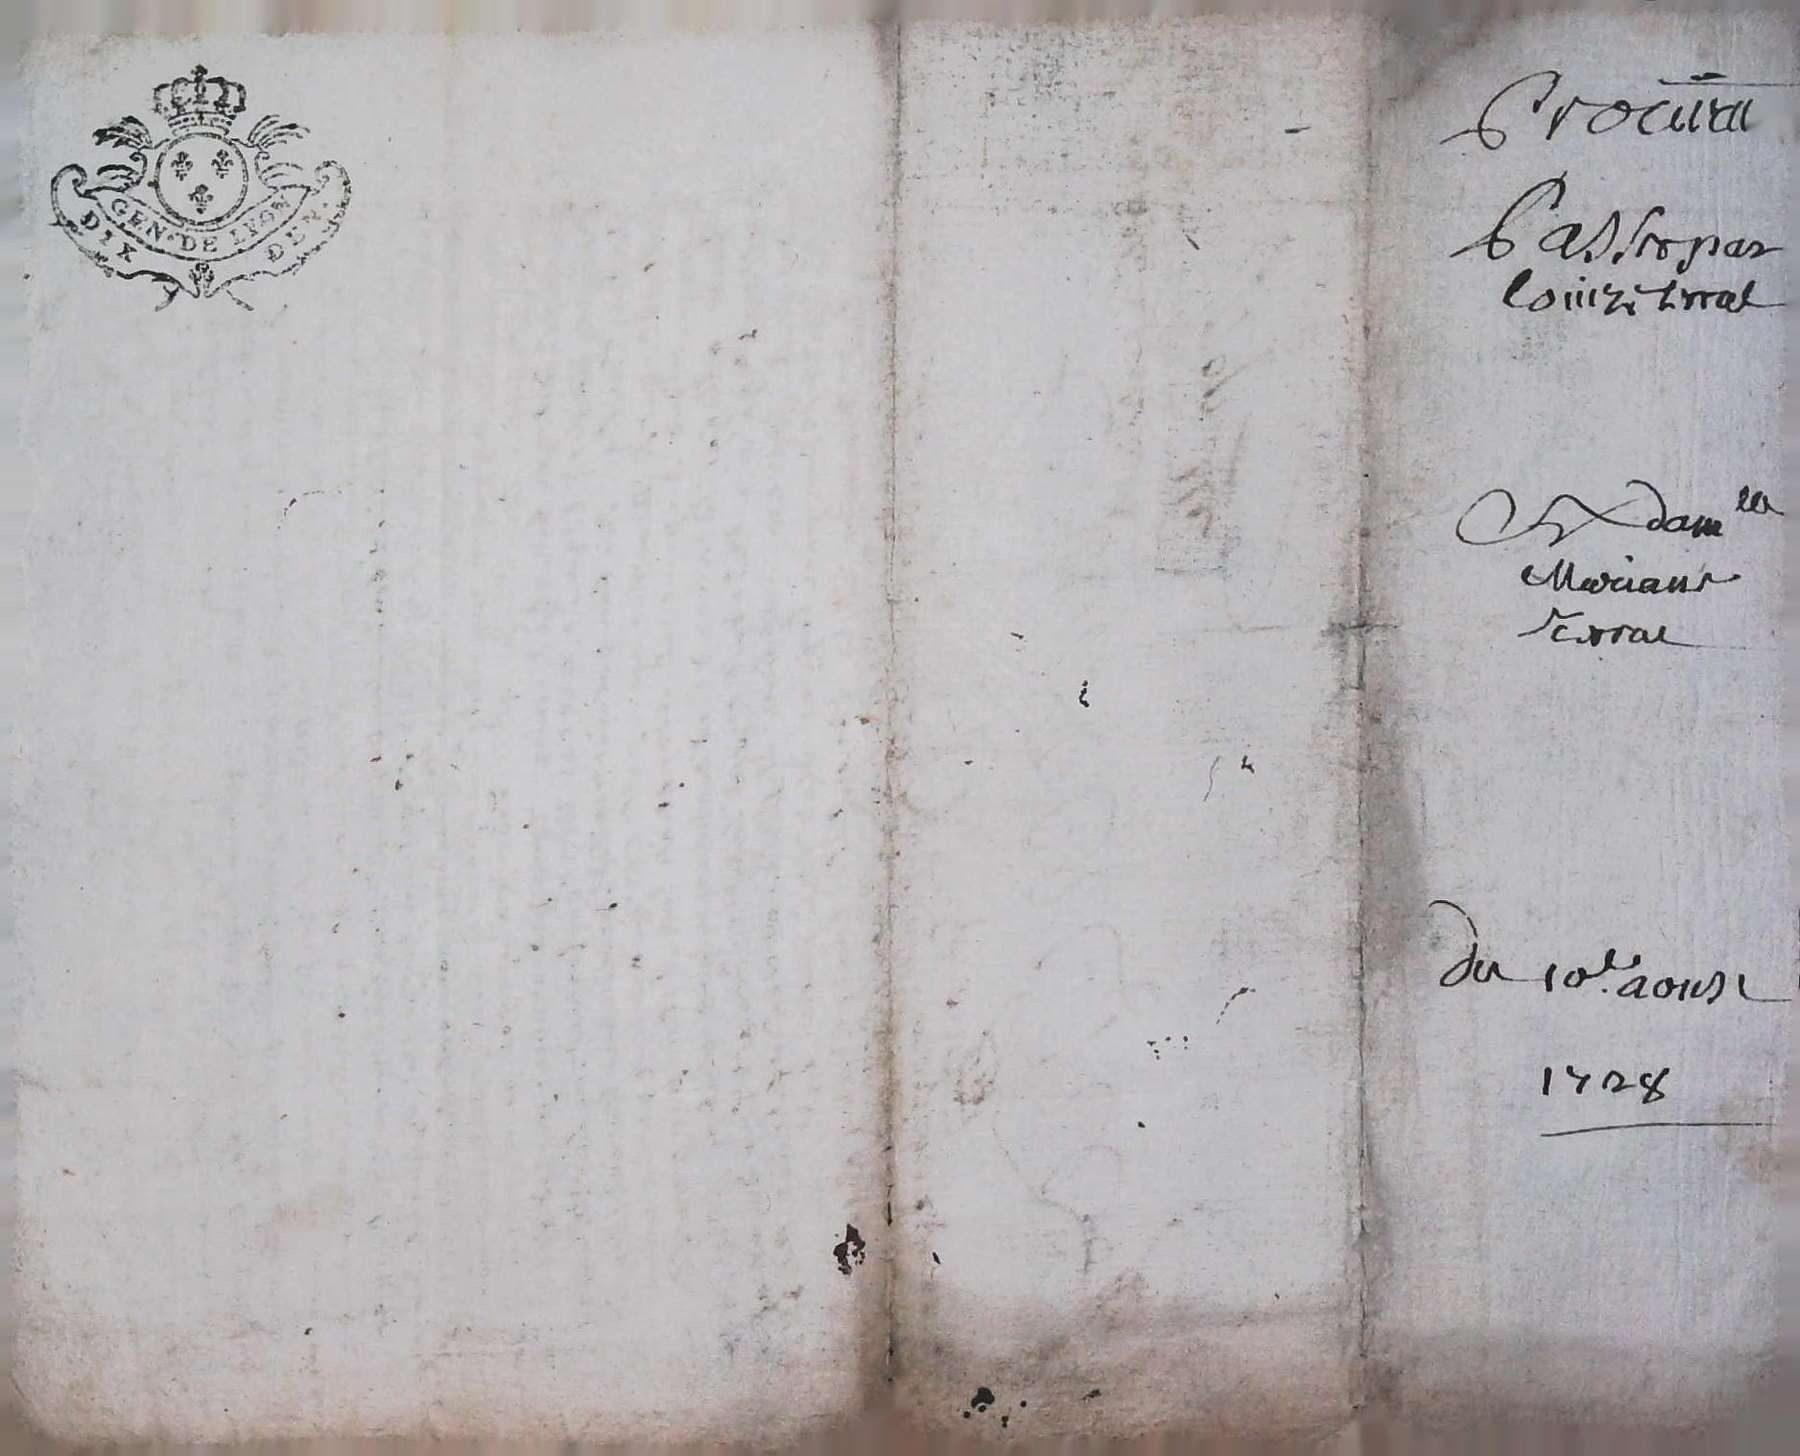 GEN. DE LYON
DIX DEN.
Procura
Passé par
Louize terrat
Et dam.lle
Mariane
terrat
du 10.e aoust
1728